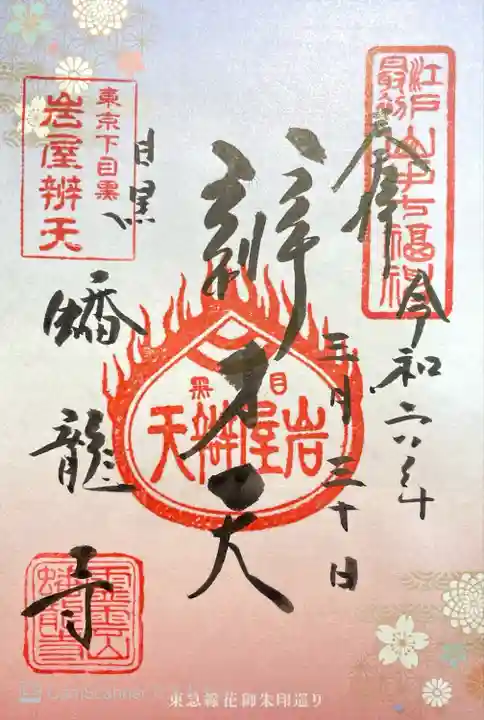 江戸最初山手七福神
奉拝
令和六年
三月三十日
辨才天
目黒
岩屋辨天
東京下目黒
岩屋辨天
目黒
蟠龍寺
霊雲山
蟠龍寺
東急線花御朱印巡り
CamScanner